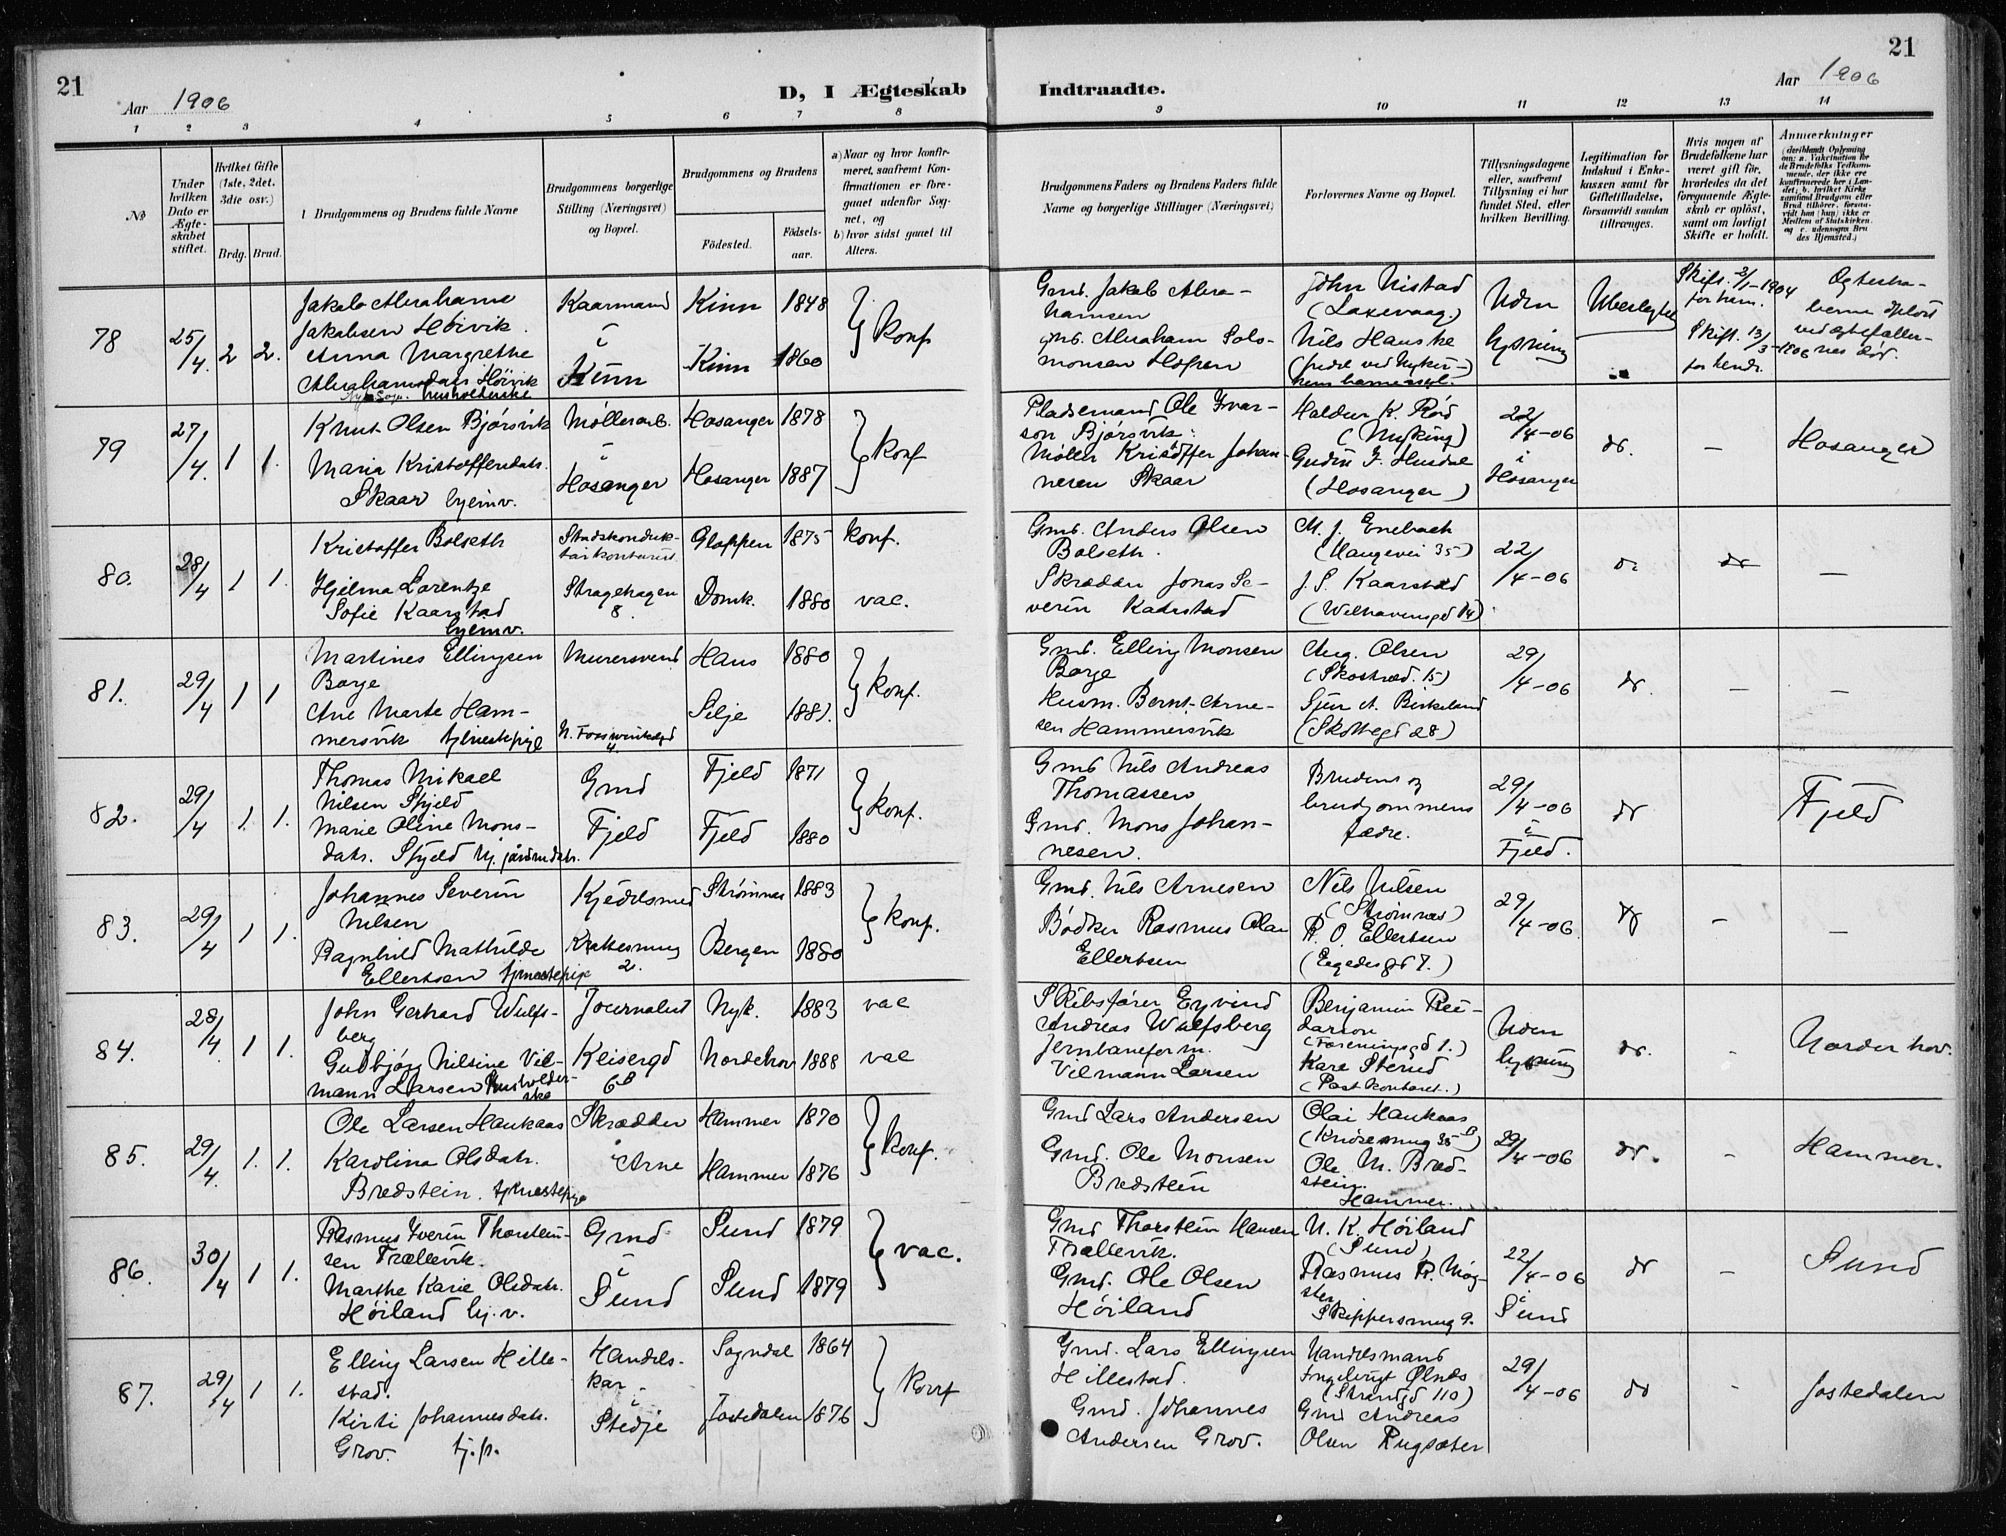 21
Aar 1906
D, I Ægteskab
Indtraadte.
21
Aar 1906
1 2 3 4 5 6 7 8 9 10 11 12 13 14
№
Under hvilken Dato er Ægte-skabet stiftet.
Hvilket Gifte (1ste, 2det, 3die osv.)
Brdg. Brud.
1 Brudgommens og Brudens fulde Navne
Brudgommens borgerlige Stilling (Næringsvei) og Bopæl.
Brudgommens og Brudens
Födested.
Födsels-aar.
a) Naar og hvor konfir-meret, saafremt Kon-firmationen er fore-gaaet udenfor Sog-net, og
b) hvor sidst gaaet til Alters.
Brudgommens Faders og Brudens Faders fulde Navne og borgerlige Stillinger (Næringsvei)
Forlovernes Navne og Bopæl.
Tillysningsdagene eller, saafremt Tillysning ei har fundet Sted, efter hvilken Bevilling.
Legitimation for Indskud i Enke-kassen samt for Giftetilladelse, forsaavidt saadan tiltrænges.
Hvis nogen af Brudefolkene har været gift för, hvorledes da det foregaaende Ægte-skab er oplöst, samt om lovligt Skifte er holdt.
Anmærkninger
(deriblandt Oplysning om: a. Vakcination for de Brudefolks Vedkom-mende, der ikke ere konfirmerede her i Lan-det; b. hvilket Kirke-samfund Brudgom eller Brud tilhörer, forsaa-vidt han (hun) ikke er Medlem af Statskirken, og c. udensogns Bru-des Hjemsted.)
78 25/4. 2 2.
Jakob Abrahams
Jakobsen Høivik.
Anna Margrethe
Abrahamsdatr Høivik
husholderske
Kaarmand
i
Kinn
Kinn 1848
Kinn 1860
konf
Gmd. Jakob Abra-
hamsen
Gmd. Abraham Salo-
monsen
John Nistad
(Laxevaag.)
Nils Hauske
Uden
lysning
Skift. 2/1-1904
for ham.
Skift. 13/3-1906
for hende.
79 27/4. 1 1.
Knut Olsen Bjørsvik
Maria Kristoffersdatr.
Skaar hjemv.
Møllerarb.
i
Hosanger
Hosanger 1878
Hosanger 1887
konf
Pladsemand Ole Ivar-
son Bjørsvik.
Møller Kristoffer Johan-
nesen Skaar
Haldur K. Rød
(Myking)
Gudm J. Husdal
(Hosanger)
22/4-06
i
Hosanger
do.
—
Hosanger
80. 28/4 1 1.
Kristoffer Bolseth
Hjelma Lorentze
Sofie Kaarstad
hjemv.
Stadskonduk-
tørkontorist
Stragehagen
8.
Gloppen 1875
Domk. 1880
konf.
vac.
Gmd. Anders Olsen
Bolseth.
Skrædder Jonas Se-
verin Kaarstad
M. J. Enebach
(Haugevei 35)
J. S. Kaarstad
(Welhavensgd 14)
22/4-06
do
do
—
81. 29/4 1 1
Martines Ellingsen
Borge
Ane Marte Ham-
mersvik tjenestepige
Murersvend
4.
Haus 1880
Selje 1881.
konf.
Gmd. Elling Monsen
Borge
Husm. Bernt Arne-
sen Hammersvik
Aug. Olsen
(Skostræd. 15)
Sjur A. Birkeland
(Skottegd 28)
29/4-06
do.
—
—
82. 29/4 1. 1.
Thomas Mikael
Nilsen Skjeld
Marie Oline Mons-
datr. Skjeld
Gmd
i
Fjeld
Fjeld 1871
Fjeld 1880
konf.
Gmd Nils Andreas
Thomassen
Gmd. Mons Johan-
nesen.
Brudens og
brudgommens
fædre.
29/4-06
i
Fjeld.
do
Fjeld
83. 29/4 1 1.
Johannes Severin
Nilsen
Ragnhild Mathilde
Ellertsen tjenestepige
Kjedelsmed
Krakesmug
2.
Strømnes 1883
Bergen 1880
konf.
Gmd. Nils Arnesen
Bødker Rasmus Olai
Ellertsen
Nels Nilsen
(Strømnes)
R. O. Ellertsen
(Eegedesgd 7.)
29/4-06.
do
–
—
84. 28/4. 1 1.
John Gerhard Wulfs-
berg
Gudbjørg Nilsine Vil-
mann Larsen husholder-
ske
Journalist
Keisergd
6B
Nyk. 1883
Norderhov 1888
vac
vac
Skibsfører Eyvind
Andreas Wulfsberg
Jernbaneform.
Vilmann Larsen
Benjamin Rei-
darson
(Foreningsgd 1.)
Kare Sterud
(Postkontoret.)
Uden
lysning
do.
-
Norderhov.
85. 29/4. 1. 1.
Ole Larsen Haukaas
Karolina Olsdatr.
Bredstein. tjenestepige
Skrædder
i Arne
Hammer 1870
Hammer 1876
konf.
Gmd Lars Andersen
Gmd. Ole Monsen
Bredstein
Olai Haukaas
(Krøsesmug 35 B)
Ole M. Bred-
stein.
Hammer.
29/4-06
do.
–
Hammer.
86. 30/4 1 1.
Rasmus Iverin Thorstein-
sen Trællevik.
Marthe Karie Olsdatr.
Høiland hj.v.
Gmd
i
Sund
Sund 1879
Sund 1879
vac.
Gmd Thorstein Hansen
Trællevik.
Gmd. Ole Olsen
Høiland
N. K. Høiland
(Sund)
Rasmus R. Møg-
ster
Skippersmug 9.
22/4-06
i
Sund
do
–
Sund
87. 29/4 1 1.
Elling Larsen Hille-
stad.
Kirsti Johannesdatr.
Grov. tj.p.
Handels-
kar
i
Stedje
Sogndal 1864
Jostedalen 1876
konf
Gmd. Lars Ellingsen
Hillestad.
Gmd. Johannes
Andersen Grov.
Handelsmand
Ingebrigt Ølnes
(Strandgd 110)
Gmd Andreas
Olsen Rugsæter
29/4-06
do
-
Jostedalen